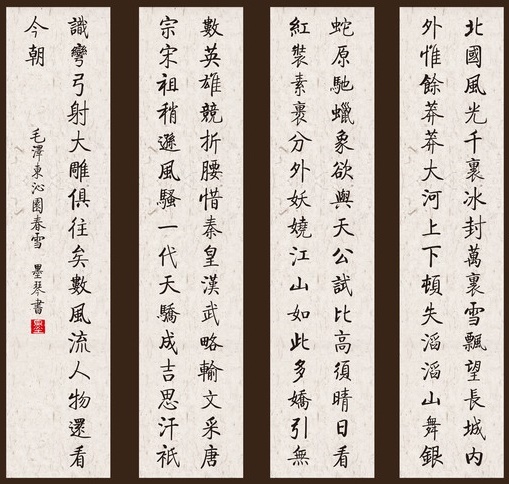 北國風光千裏冰封萬裏雪飄望長城內
外惟餘莽莽大河上下頓失滔滔山舞銀
蛇原馳蠟象欲與天公試比高須晴日看
紅裝素裹分外妖嬈江山如此多嬌引無
數英雄競折腰惜秦皇漢武略輸文采唐
宗宋祖稍遜風騷一代天驕成吉思汗祇
識彎弓射大雕俱往矣數風流人物還看
今朝
毛澤東沁園春雪 墨琴書